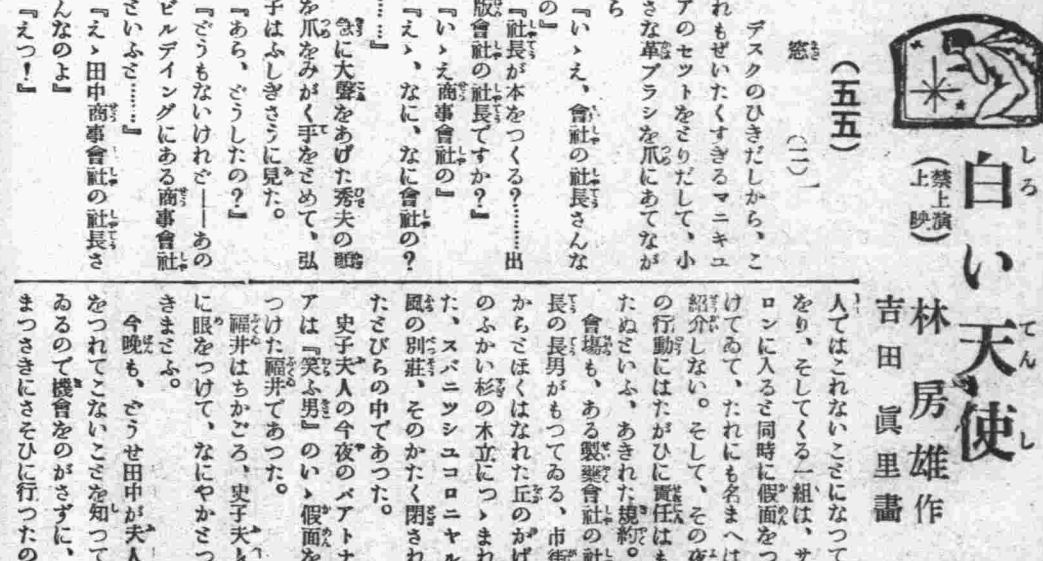 白い天使
しろ てんし
(禁上演上映)
林房雄作
吉田眞里畵
(五五)
窓 (二)
デスクのひきだしから、こ
れもぜいたくすぎるマニキユ
アのセツトをとりだして、小
さな革ブラシを爪にあてなが
ら
『いゝえ、會社の社長さんな
の』
『社長が本をつくる?………出
版會社の社長ですか?』
『いゝえ商事會社の』
『えゝ、なに、なに會社の?
……』
急に大聲をあげた秀夫の顔
を爪をみがく手をとめて、弘
子はふしぎさうに見た。
『あら、どうしたの?』
『どうもないけれど――あの
ビルデイングにある商事會社
といふと………』
『えゝ田中商事會社の社長さ
んなのよ』
『えつ!』
人てはこれないことになつて
をり、そしてくる一組は、サ
ロンに入ると同時に假面をつ
けてゐて、たれにも名まへは
紹介しない。そして、その夜
の行動にはたがひに責任はも
たぬといふ、あきれた規約。
會場も、ある製藥會社の社
長の長男がもつてゐる、市街
からとほくはなれた丘のかげ
のふかい杉の木立につゝまれ
た、スパニツシユコロニヤル
風の別莊、そのかたく閉され
たとびらの中であつた。
史子夫人の今夜のパアトナ
アは『笑ふ男』のいゝ假面を
つけた福井であつた。
福井はちかごろ、史子夫人
に眼をつけて、なにやかとつ
きまとふ。
今晩も、どうせ田中が夫人
をつれてこないことを知つて
ゐるので機會をのがさずに、
まつさきにさそひに行つたの